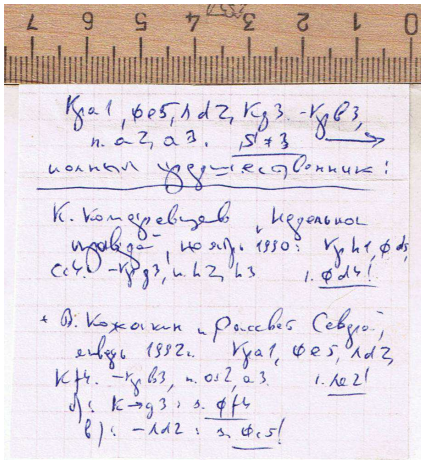 7 6 5 4 3 2 1 0
Кра1, Фе5, Лd2, Кg3. – Крb3,
п. a2, a3. S#3
полный предшественник!
К. Комаревцев „Недельная
правда", ноябрь 1990: Крh1, Фd5,
Сc4. – Крg3, п. h2, h3 1. Фd4!
+ В. Кожакин „Рассвет Севера",
январь 1992г. Кра1, Фе5, Лd2,
Кf4. – Крb3, п. a2, a3. 1. Ле2!
б): К→g3: 1. Фf4
в): –Лd2: 1. Фc5!